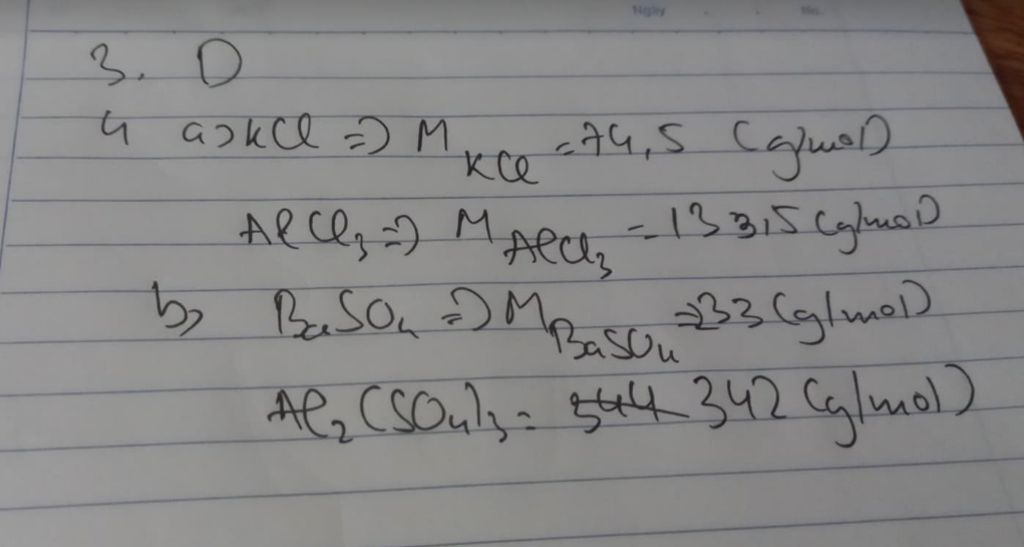 Ngày No.
3. D
4 a> KCl => M KCl = 74,5 (g/mol)
AlCl₃ => M AlCl₃ = 133,5 (g/mol)
b> BaSO₄ => M BaSO₄ = 233 (g/mol)
Al₂(SO₄)₃ = 544 342 (g/mol)